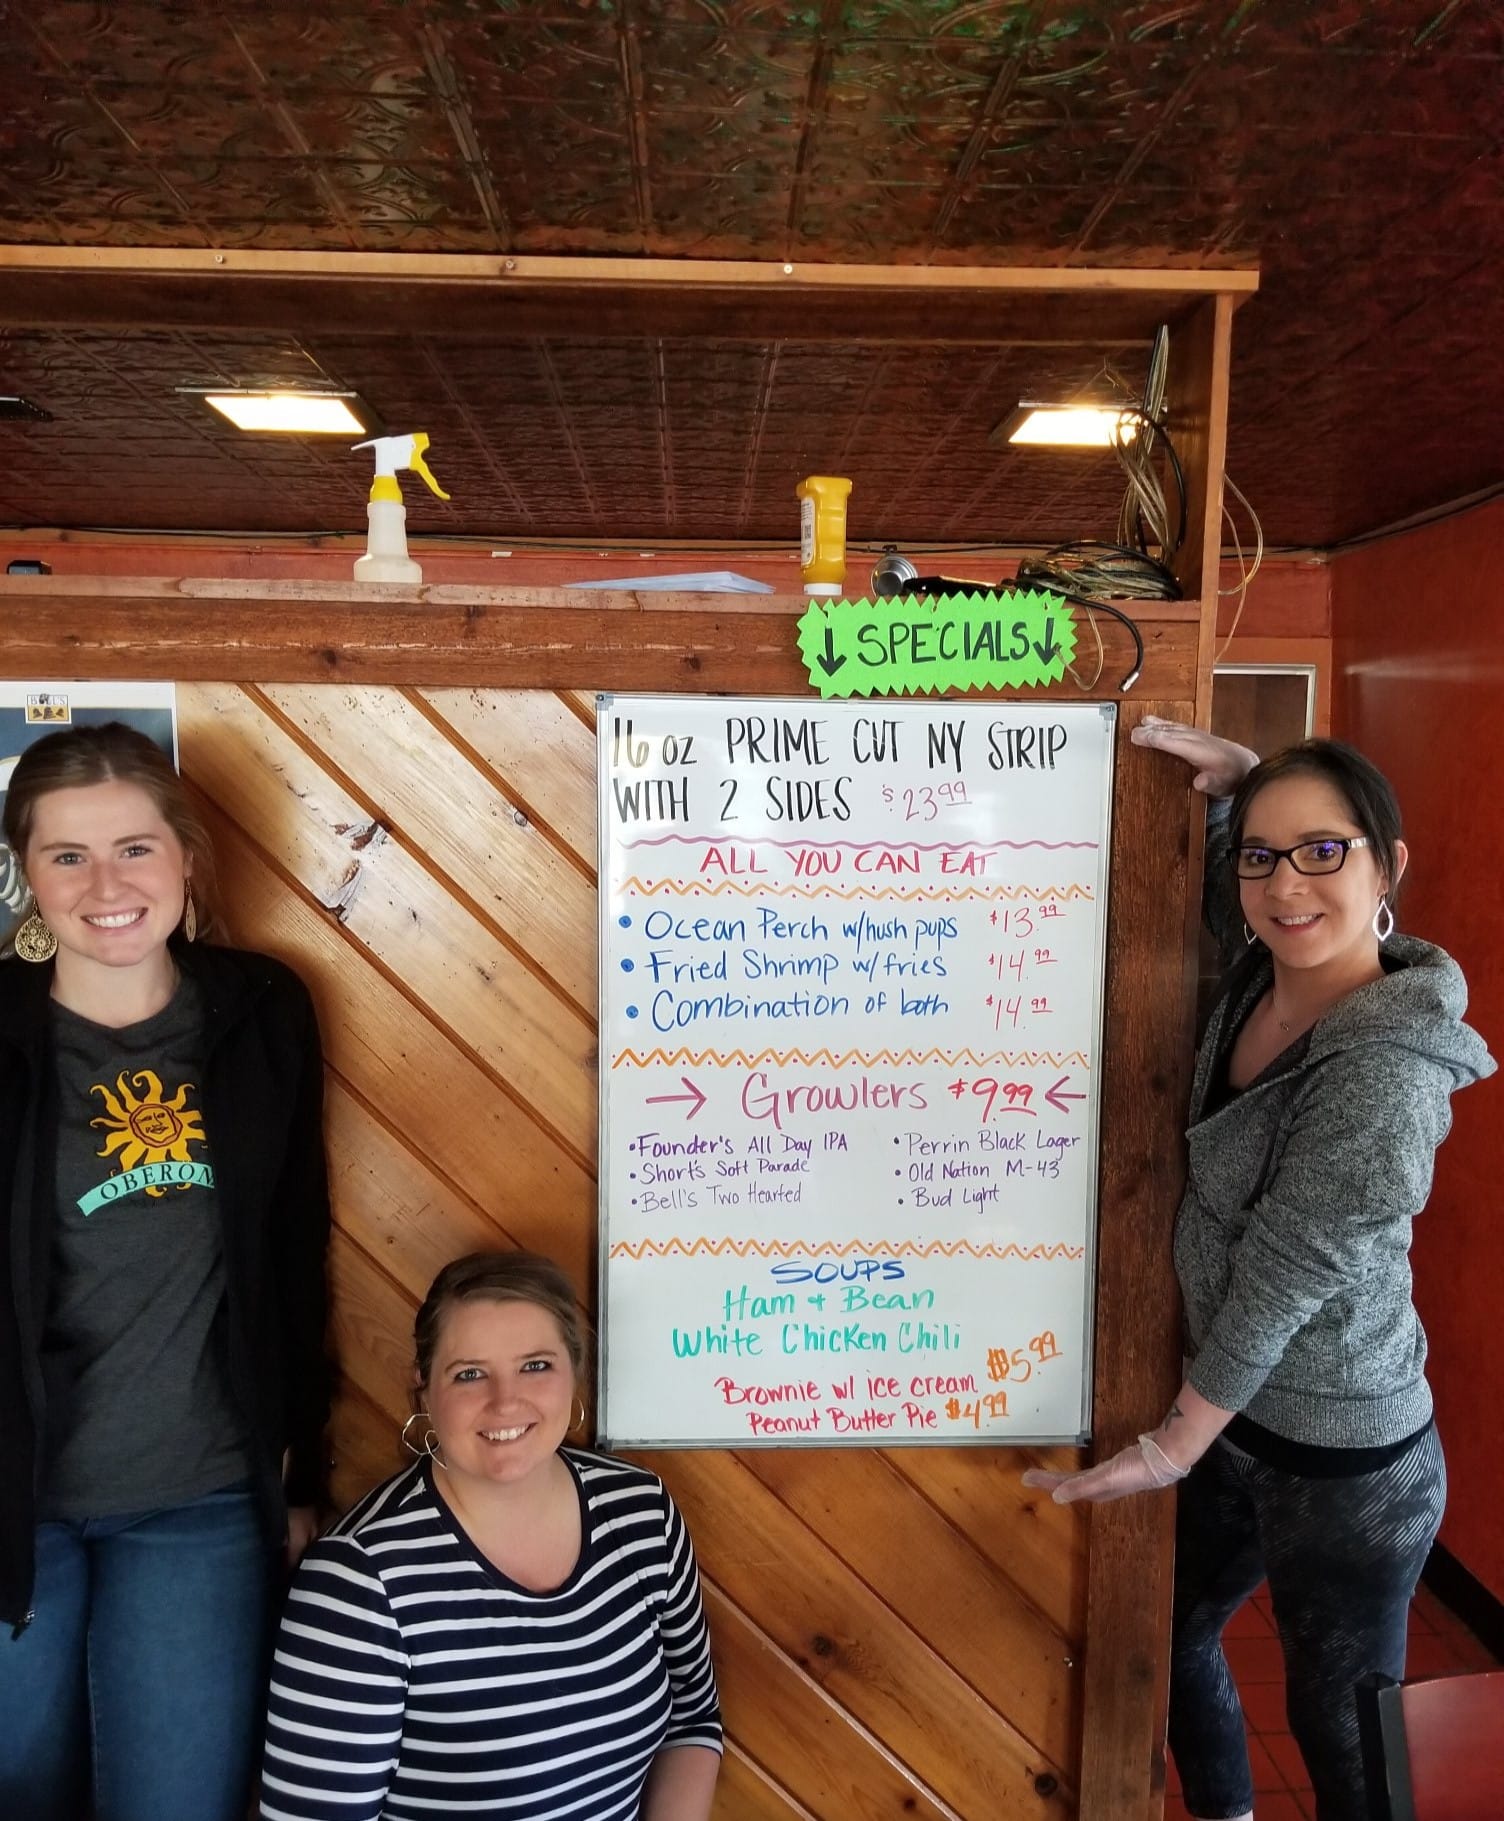 ↓ SPECIALS ↓
16 oz PRIME CUT NY STRIP
WITH 2 SIDES $23.99
ALL YOU CAN EAT
• Ocean Perch w/hush pups $13.99
• Fried Shrimp w/fries $14.99
• Combination of both $14.99
→ Growlers $9.99 ←
• Founder's All Day IPA • Perrin Black Lager
• Short's Soft Parade • Old Nation M-43
• Bell's Two Hearted • Bud Light
SOUPS
Ham + Bean
White Chicken Chili
Brownie w/ ice cream $5.99
Peanut Butter Pie $4.99
BELL'S
OBERON